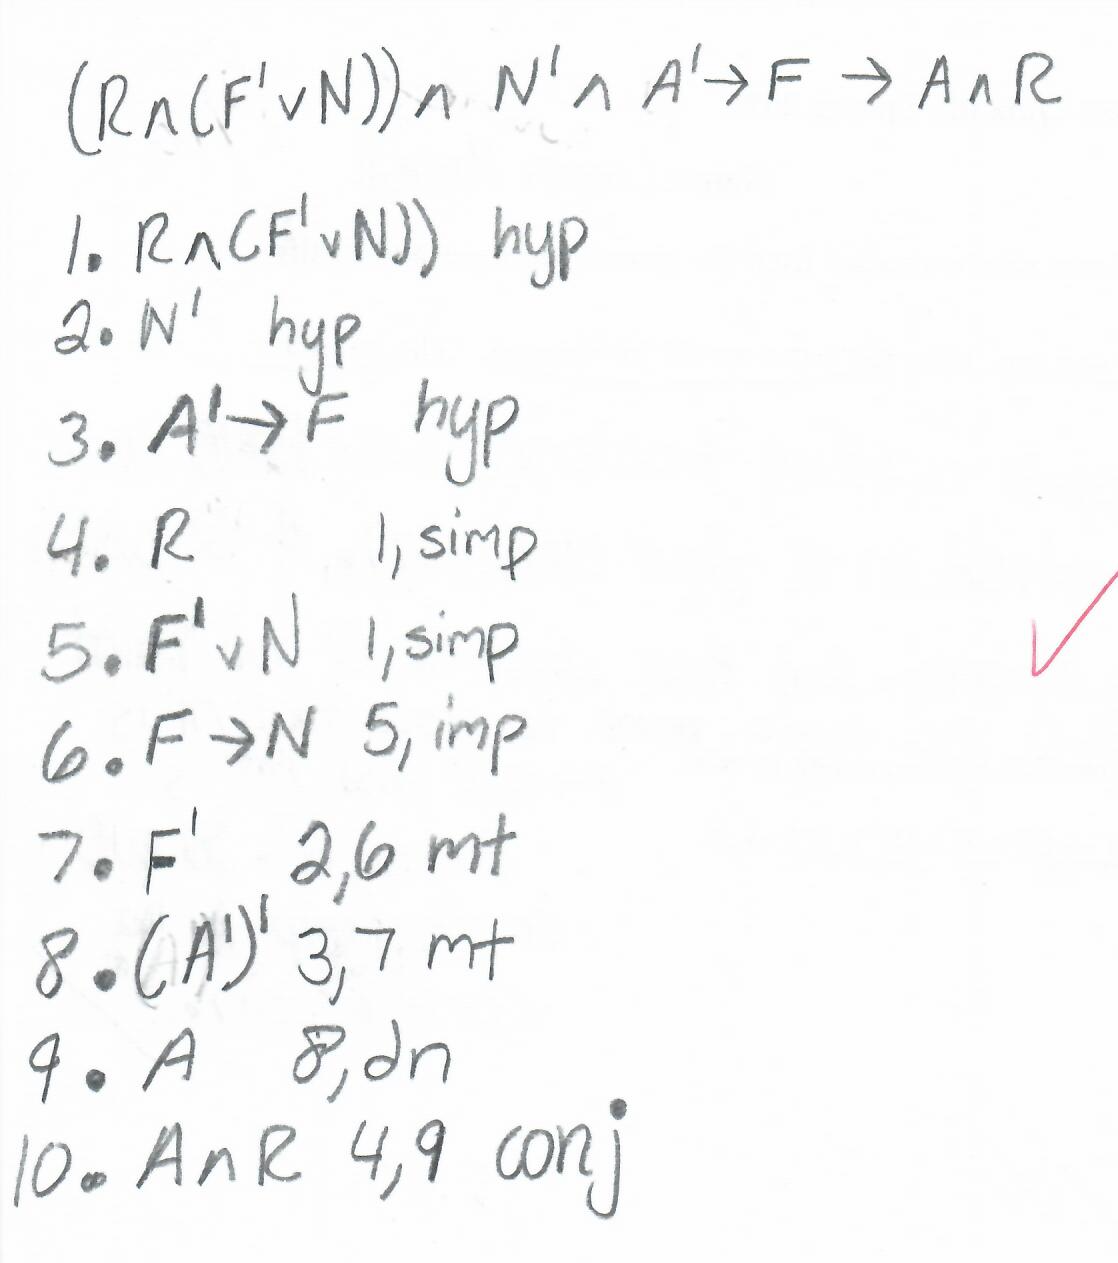 (R∧(F'∨N))∧ N'∧ A'→F → A∧R
1. R∧(F'∨N)) hyp
2. N' hyp
3. A'→F hyp
4. R 1, simp
5. F'∨N 1, simp
6. F→N 5, imp
7. F' 2,6 mt
8. (A')' 3,7 mt
9. A 8, dn
10. A∧R 4,9 conj